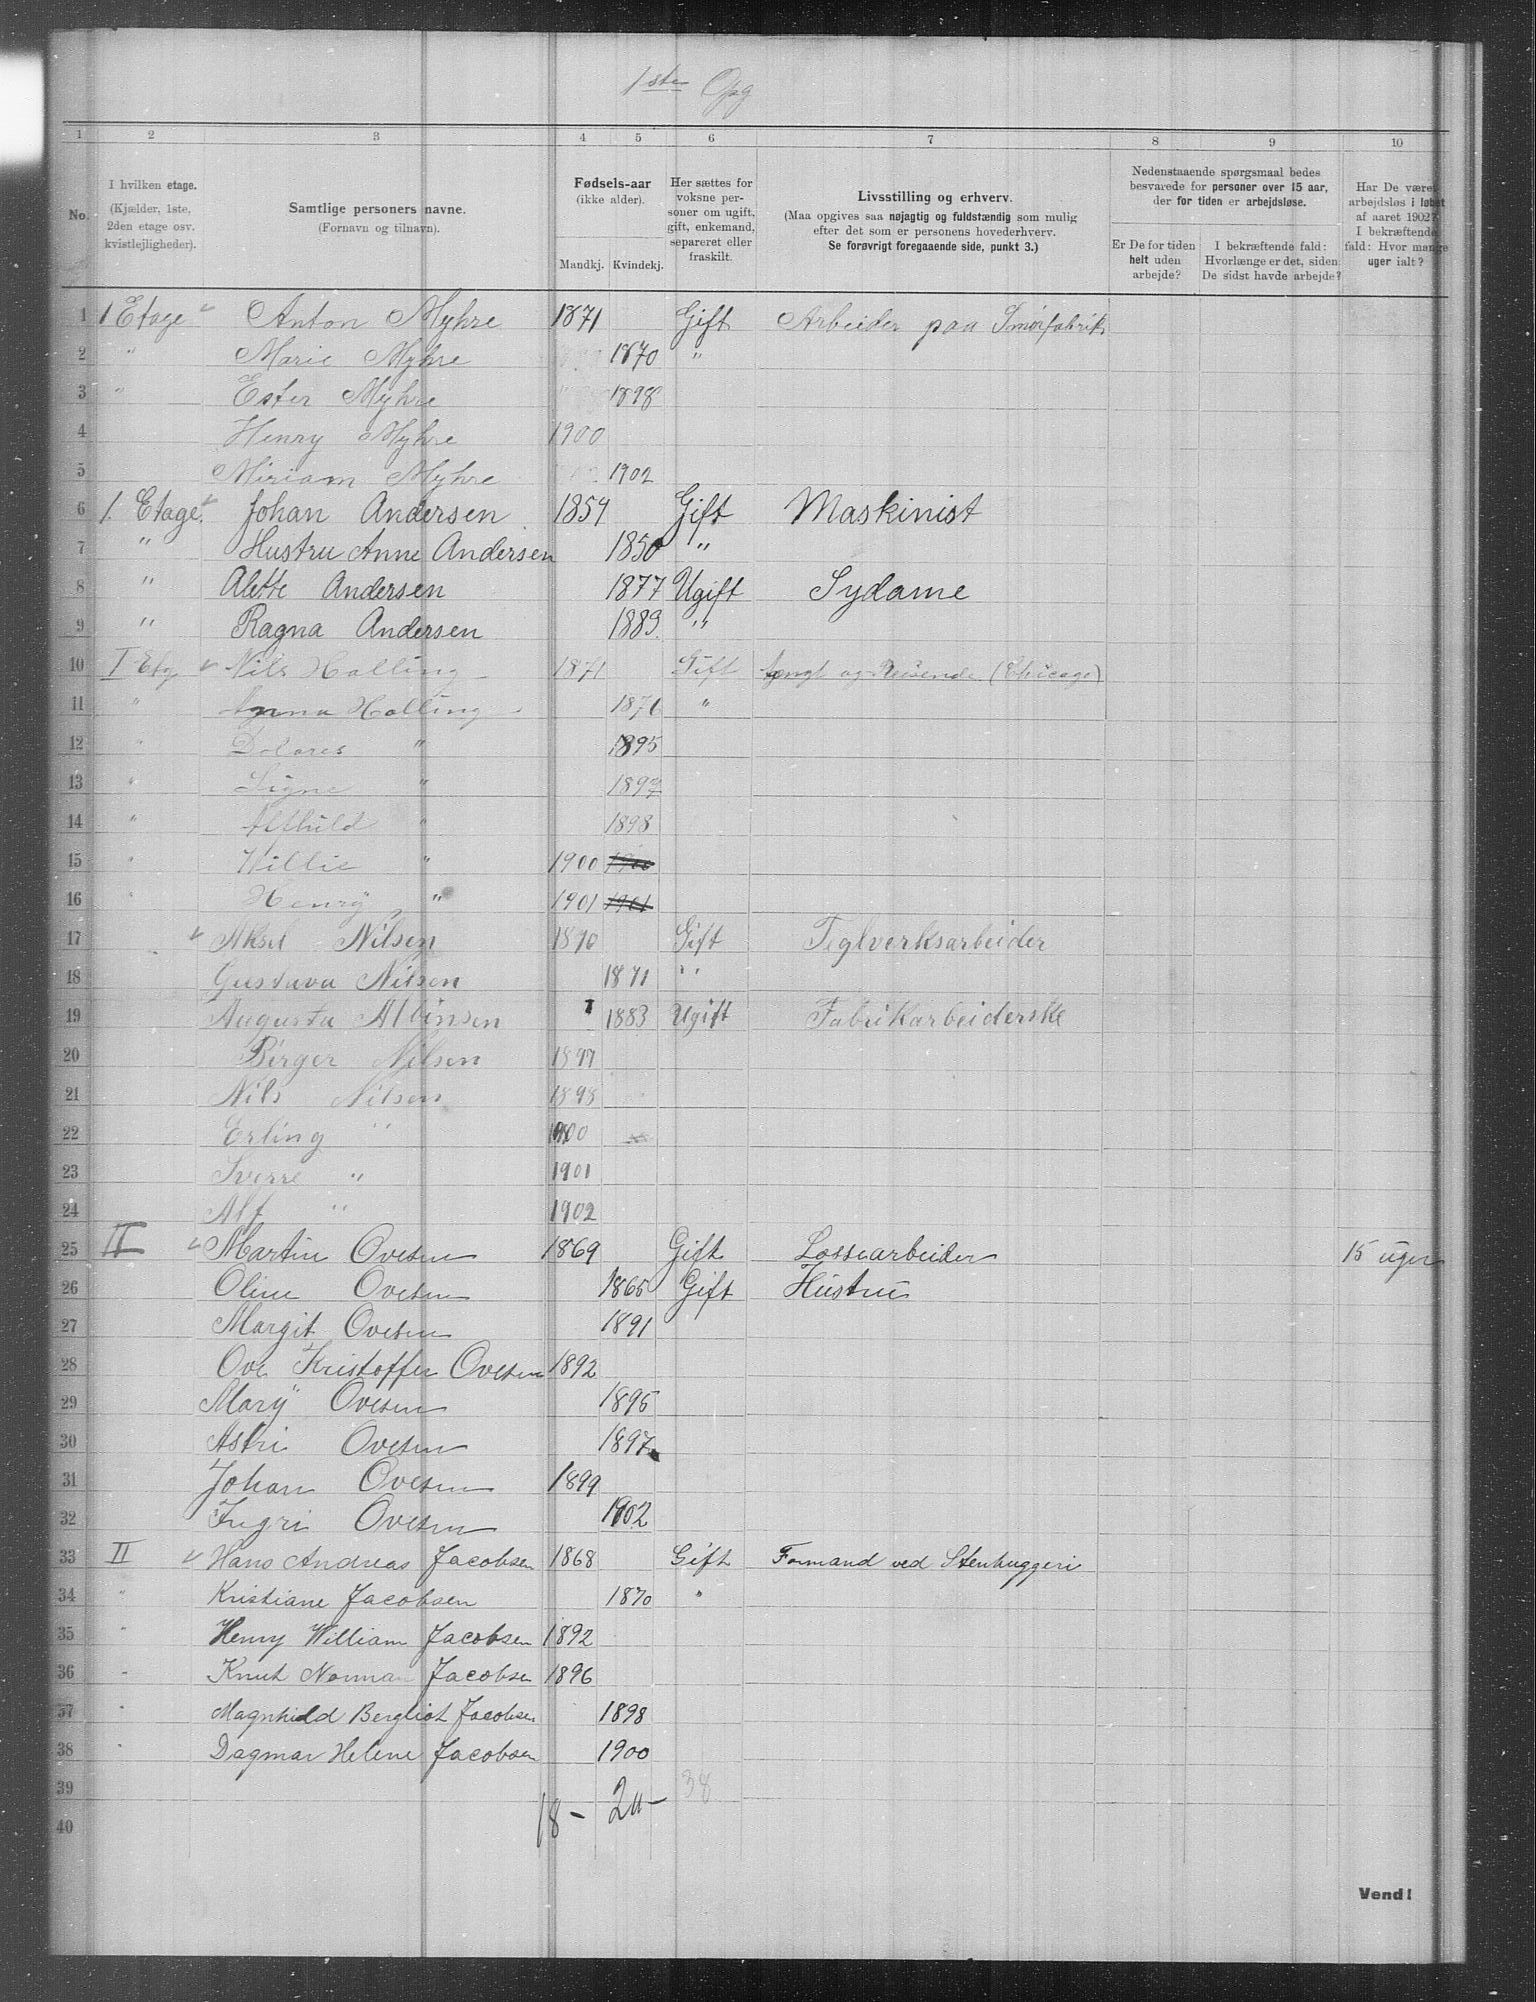 1ste Opg
1 2 3 4 5 6 7 8 9 10
No.
I hvilken etage.
(Kjælder, 1ste, 2den etage osv. kvistlejligheder).
Samtlige personers navne.
(Fornavn og tilnavn).
Fødsels-aar
(ikke alder).
Mandkj. Kvindekj.
Her sættes for voksne personer om ugift, gift, enkemand, separeret eller fraskilt.
Livsstilling og erhverv.
(Maa opgives saa nøjagtig og fuldstændig som mulig efter det som er personens hovederhverv.
Se forøvrigt foregaaende side, punkt 3.)
Nedenstaaende spørgsmaal bedes besvarede for personer over 15 aar, der for tiden er arbejdsløse.
Er De for tiden helt uden arbejde?
I bekræftende fald: Hvorlænge er det, siden De sidst havde arbejde?
Har De været arbejdsløs i løbet af aaret 1902?
I bekræftende fald: Hvor mange uger ialt?
1 1 Etage Anton Myhre 1871 Gift Arbeider paa Smørfabrik
2 " Marie Myhre 1870 "
3 " Ester Myhre 1898
4 Henry Myhre 1900
5 Miriam Myhre 1902
6 1. Etage. Johan Andersen 1854 Gift Maskinist
7 " Hustru Anne Andersen 1850 "
8 " Alette Andersen 1877 Ugift Sydame
9 " Ragna Andersen 1889. "
10 I Etg Nils Halling 1871 Gift Agngt og Reisende (Chicago)
11 " Anna Halling 1871 "
12 " Dolores " 1895
13 " Signe " 1897
14 " Alfhild " 1898
15 " Willie " 1900 1900
16 " Henrÿ " 1901 1901
17 Aksel Nilsen 1870 Gift Teglverksarbeider
18 Gustava Nilsen 1871 "
19 Augusta Albinsen 1883 Ugift Fabrikarbeiderske
20 Birger Nilsen 1897
21 Nils Nilsen 1898
22 Erling " 1900
23 Sverre " 1901
24 Alf " 1902
25 II Martin Ovesen 1869 Gift Lossearbeider 15 uger
26 Oline Ovesen 1865 Gift Hustru
27 Margit Ovesen 1891
28 Ove Kristoffer Ovesen 1892
29 Marÿ Ovesen 1895
30 Astri Ovesen 1897
31 Johan Ovesen 1899
32 Ingri Ovesen 1902
33 II Hans Andreas Jacobsen 1868 Gift Formand ved Stenhuggeri
34 " Kristiane Jacobsen 1870 "
35 " Henry William Jacobsen 1892
36 " Knut Norman Jacobsen 1896
37 " Magnhild Bergliot Jacobsen 1898
38 " Dagmar Helene Jacobsen 1900
39
40
18 - 20 - 38
Vend!